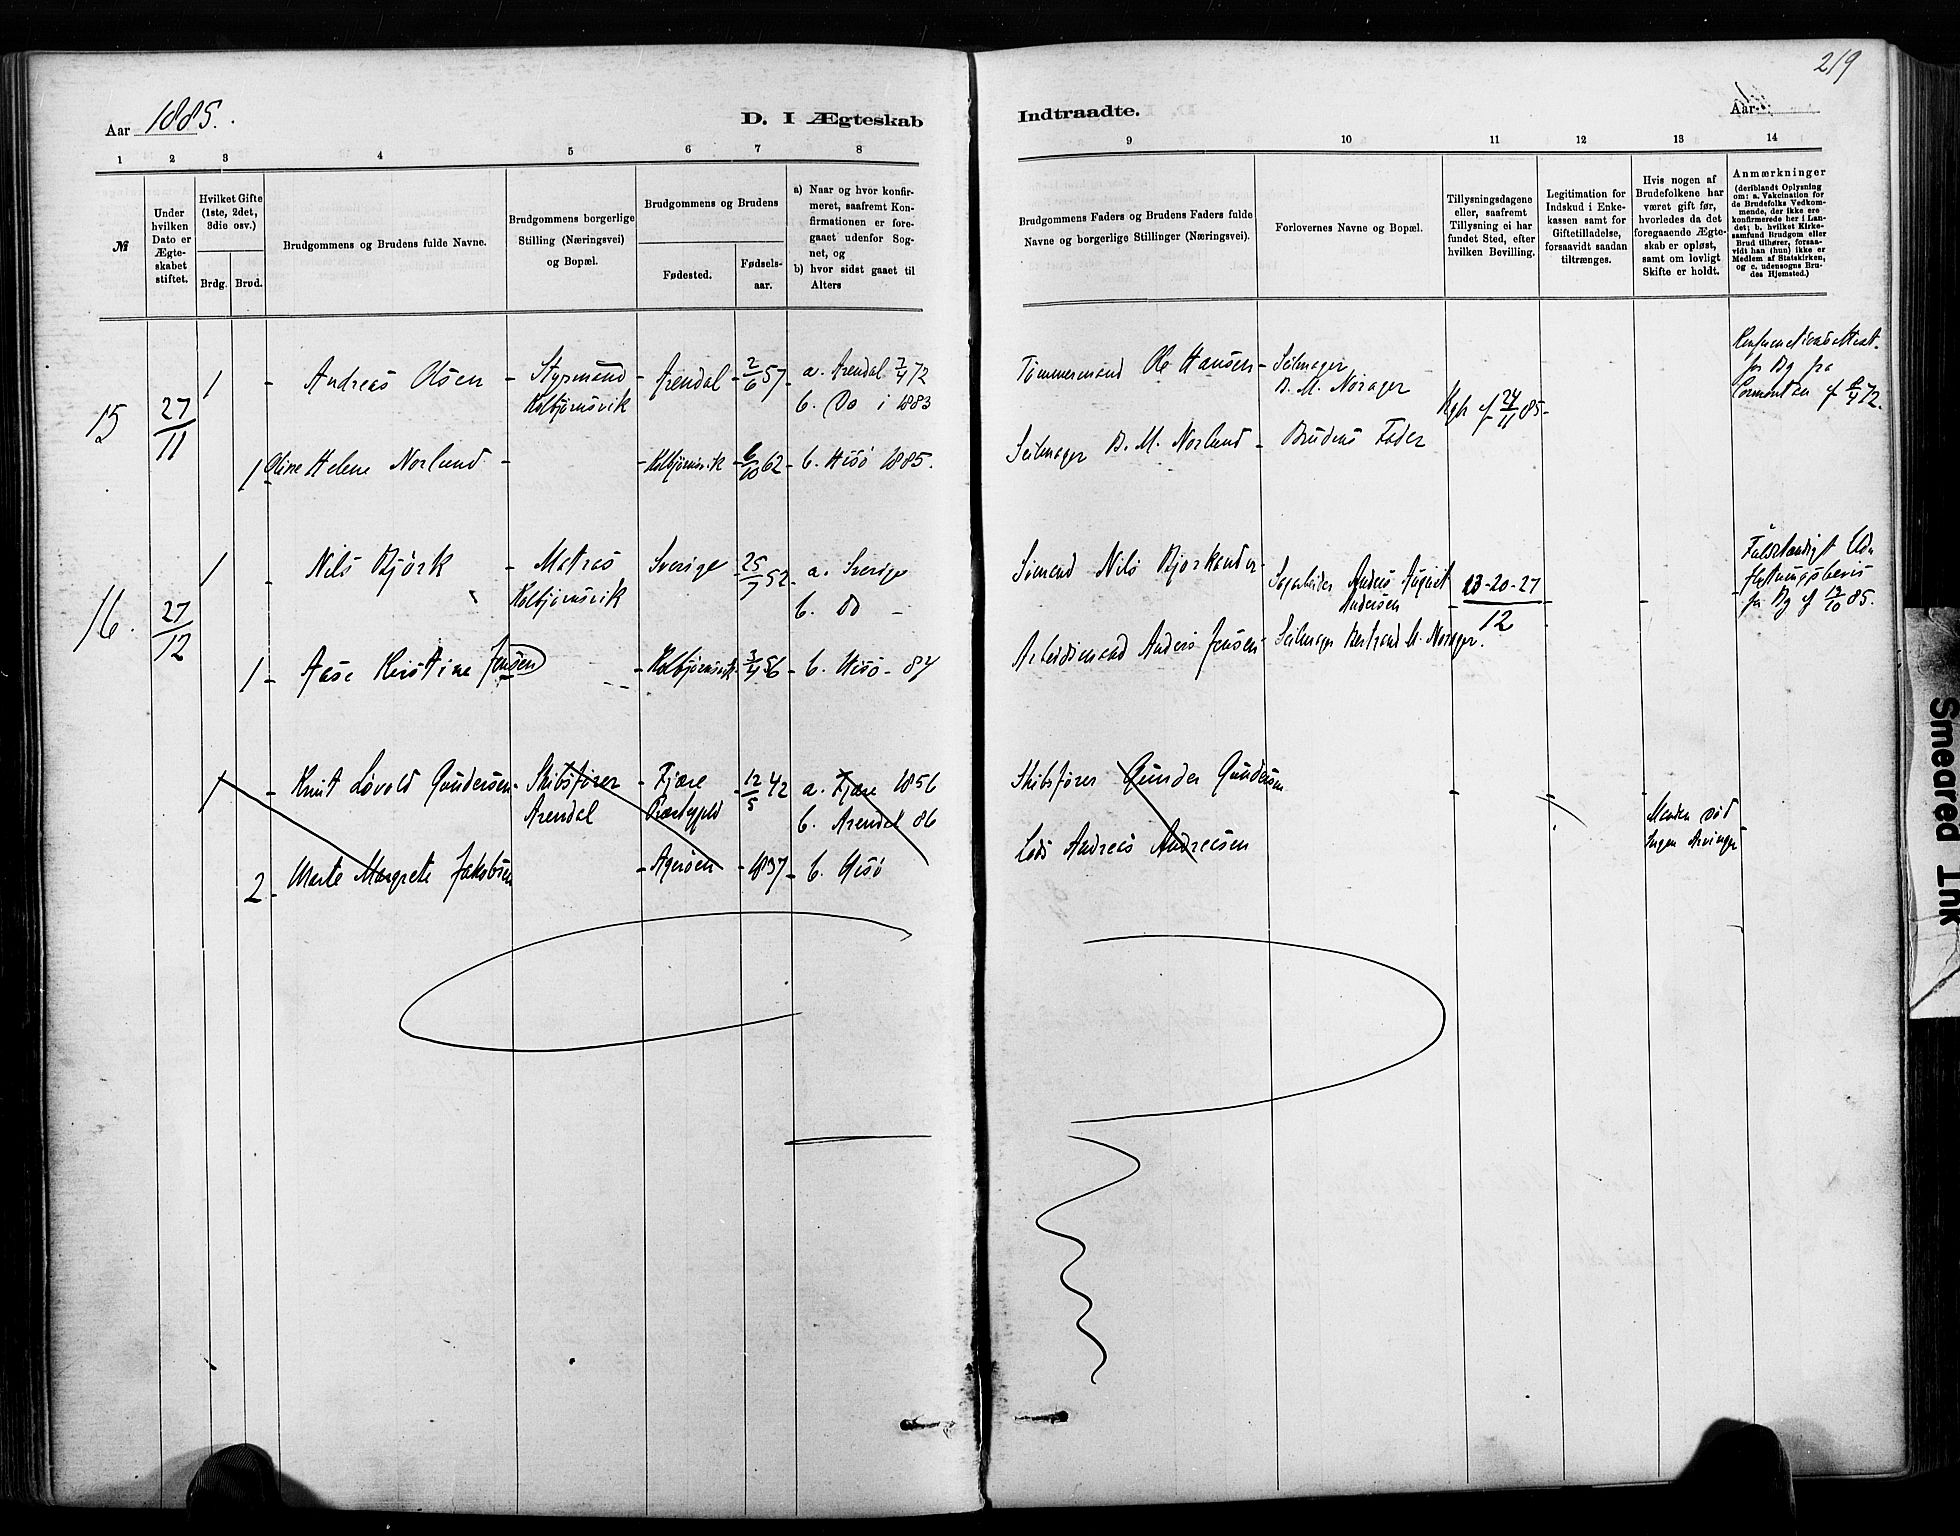 219
Aar 1885.
D. I Ægteskab
Indtraadte.
Aar
1 2 3 4 5 6 7 8
9 10 11 12 13 14
№
Under
hvilken
Dato er
Ægte-
skabet
stiftet.
Hvilket Gifte
(1ste, 2det,
3die osv.)
Brdg.
Brud.
Brudgommens og Brudens fulde Navne.
Brudgommens borgerlige
Stilling (Næringsvei)
og Bopæl.
Brudgommens og Brudens
Fødested.
Fødsels-
aar.
a) Naar og hvor konfir-
meret, saafremt Kon-
firmationen er fore-
gaaet udenfor Sog-
net, og
b) hvor sidst gaaet til
Alters
Brudgommens Faders og Brudens Faders fulde
Navne og borgerlige Stillinger (Næringsvei).
Forlovernes Navne og Bopæl.
Tillysningsdagene
eller, saafremt
Tillysning ei har
fundet Sted, efter
hvilken Bevilling.
Legitimation for
Indskud i Enke-
kassen samt for
Giftetilladelse,
forsaavidt saadan
tiltrænges.
Hvis nogen af
Brudefolkene har
været gift før,
hvorledes da det
foregaaende Ægte-
skab er opløst,
samt om lovligt
Skifte er holdt.
Anmærkninger
(deriblandt Oplysning
om: a. Vakcination for
de Brudefolks Vedkom-
mende, der ikke ere
konfirmerede her i Lan-
det; b. hvilket Kirke-
samfund Brudgom eller
Brud tilhører, forsaa-
vidt han (hun) ikke er
Medlem af Statskirken,
og c. udensogns Bru-
des Hjemsted.)
15 27/11 1 - Andreas Olsen - Styrmand - Arendal - 2/6 57 - a. Arendal 7/4 72
Kolbjørnsvik b. Do i 1883
Tømmermand Ole Hansen - Seilmager
B. M. Norager
Kgb f 24/11 85 -
for Bg fra
1 Oline Helene Norlund - - Kolbjørnsvik - 6/10 62 - b. Hisø 1885.
Seilmager B. M. Norlund - Brudens Fader
16. 27/12 1 - Nils Bjørk - Matros Sverige - 25/7 52 - a. Sverige
Kolbjørnsvik b. Do -
Sømand Nils Bjorkander - Anders August
Andersen
13-20-27
12
Fuldstændigt Ud-
flytningsbevis
fra Bg f 19/10 85.
1 - Aase Kirstine Jensen - Kolbjørnsvik - 3/4 56 - b. Hisø - 84
Arbeidsmand Anders Jensen - Seilmager Bertrand M. Norager.
1 - Knut Løvold Gundersen - Skibsfører - Fjære - 12/5 42 - a. Fjære 1856
Arendal Præstegjeld b. Arendal 86
Skibsfører Gunder Gundersen
Manden død
Ingen Arvinger
2 - Marte Margrete Jakobsen - Agerøen - 1837 - b. Hisø
Lods Andreas Andreasen
Smeared Ink